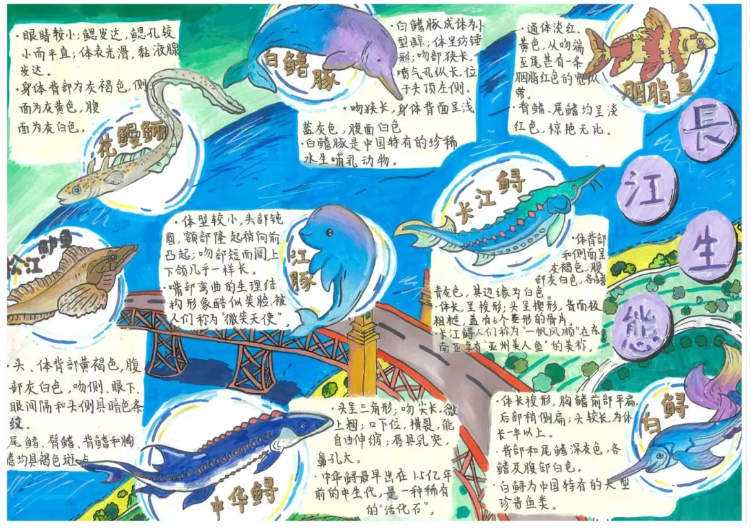 ·眼睛较小;鳃发达,鳃孔较
小而平直;体表光滑,黏液腺
发达。
·身体背部为灰褐色,侧
面为灰黄色,腹
面为灰白色。
花鳗鲡
白鳍豚
·白鳍豚成体为小
型鲸;体呈纺锤
形;吻部狭长,
喷气孔纵长,位
于头顶左侧。
·吻狭长,身体背面呈浅
蓝灰色,腹面白色
·白鳍豚是中国特有的珍稀
水生哺乳动物。
·通体淡红、
黄色,从吻端
至尾基有一条
胭脂红色的宽纵
带。
·背鳍、尾鳍均呈淡
红色,惊艳无比。
胭脂鱼
長
江
生
態
松江鲈鱼
·头、体背部黄褐色,腹
部灰白色,吻侧、眼下、
眼间隔和头侧具暗色条
纹。
尾鳍、臀鳍、背鳍和胸
鳍均具褐色斑点
·体型较小,头部钝
圆,额部隆起稍向前
凸起;吻部短而阔上
下颌几乎一样长。
·嘴部弯曲的生理结
构形象酷似笑脸,被
人们称为“微笑天使”。
江豚
长江鲟
·体背部
和侧面呈
灰褐色,腹
部灰白色,各鳍
青灰色,其边缘为白色。
·体长呈梭形;头呈楔形,背面极
粗糙,盖有
·长江鲟人们称为“一帆风顺”,在东
南亚享有“亚洲美人鱼”的美称。
中华鲟
·头呈三角形;吻尖长,微
上翘;口下位,横裂,能
自由伸缩;唇具乳突,
鼻孔大。
·中华鲟最早出在1.5亿年
前的中生代,是一种稀有
的“活化石”。
·体长梭形,胸鳍前部平扁,
后部稍侧扁;头较长,为体
长一半以上。
·背部和尾鳍深灰色,各
鳍及腹部白色。
·白鲟为中国特有的大型
珍贵鱼类。
白鲟